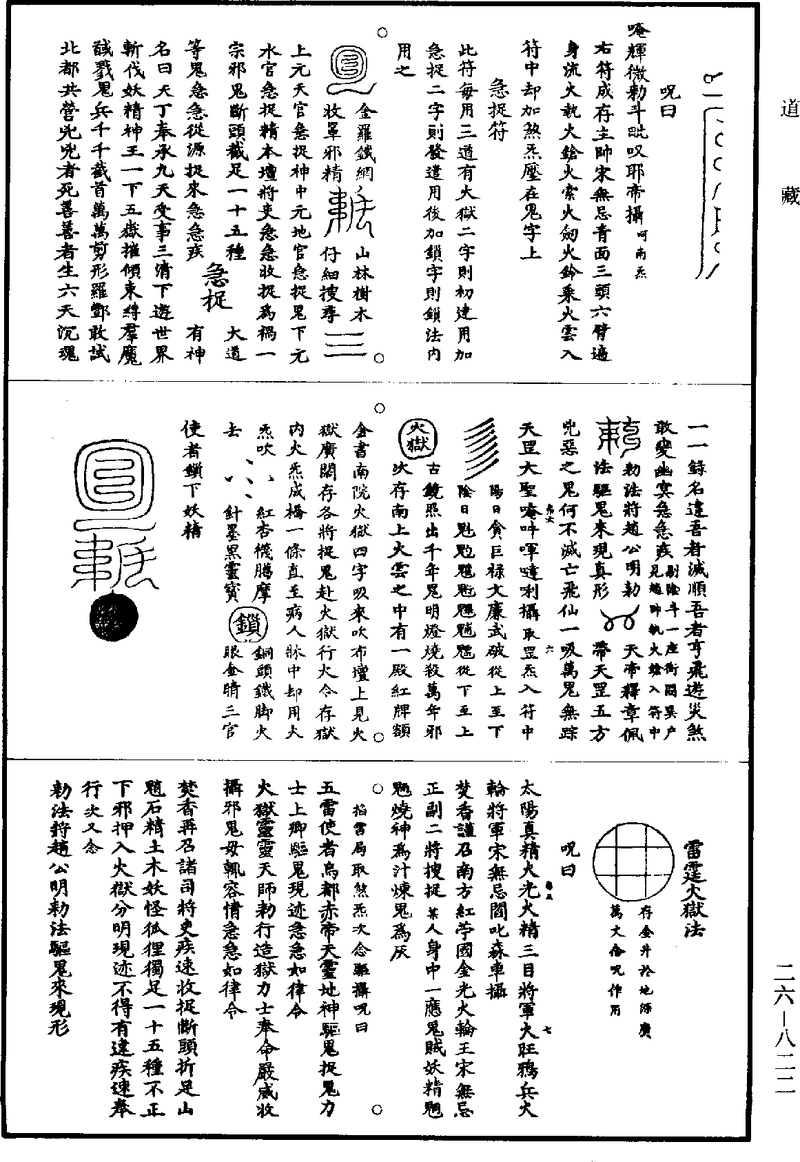 道藏
呪曰
唵輝微勑斗毗呶耶帝攝呵南炁
右符成存主帥宋無忌青面三頭六臂遍
身流火執火鎗火索火劒火鈴乘火雲入
符中却加煞炁壓在鬼字上
急捉符
此符每用三道有火獄二字則初建用加
急捉二字則發遣用後加鎖字則鎖法內
用之
金羅鐵網
收罩邪精
山林樹木
仔細搜尋
上元天官急捉神中元地官急捉鬼下元
水官急捉精本壇將吏急急收捉為禍一
宗邪鬼斷頭截足一十五種
大道
等鬼急急從源捉來急急疾
急捉
有神
名曰天丁奉承九天受事三清下遊世界
斬伐妖精神王一下五嶽摧傾束縛羣魔
馘戮鬼兵千千截首萬萬剪形羅酆敢試
北都共營兇兇者死善善者生六天沉魂
一一錄名違吾者滅順吾者亨飛遊災煞
敢變幽冥急急疾
剔除斗一座街罡巽户
見趙帥執火鎗入符中
勑法將趙公明勑
法驅鬼來現真形
天帝釋章佩
帶天罡五方
兇惡之鬼何不滅亡飛仙一吸萬鬼無踪
天罡大聖唵吽㖶噠唎攝取罡炁入符中
陽日貪巨祿文廉武破從上至下
陰日魁𩲃䰢魓䰟䰣魒從下至上
火獄
古鏡照出千年鬼明燈燒殺萬年邪
次存南上火雲之中有一殿紅牌額
金書南院火獄四字吸來吹布壇上見火
獄廣闊存各將捉鬼赴火獄行火令存獄
內火炁成橋一條直至病人脉中却用大
炁吹
紅杏機騰摩
鎖
銅頭鐵脚火
去
針墨黑靈寶
眼金睛三官
使者鎖下妖精
雷霆火獄法
存金井於地深廣
萬丈念呪作用
呪曰
太陽真精火光火精三目將軍火旺鴉兵火
輪將軍宋無忌閻叱森車攝
焚香謹召南方紅苧國金光火輪王宋無忌
正副二將搜捉某人身中一應鬼賊妖精魍
魎燒神為汁煉鬼為灰
掐雷局取煞炁次念驅攝呪曰
五雷使者烏都赤帝天靈地神驅鬼捉鬼力
士上卿驅鬼現迹急急如律令
火獄靈靈天師勑行造獄力士奉命嚴威收
攝邪鬼毋輒容情急急如律令
焚香再召諸司將吏疾速收捉斷頭折足山
魈石精土木妖怪狐狸獨足一十五種不正
下邪押入火獄分明現迹不得有違疾速奉
行次又念
勑法將趙公明勑法驅鬼來現形
二六—八二二